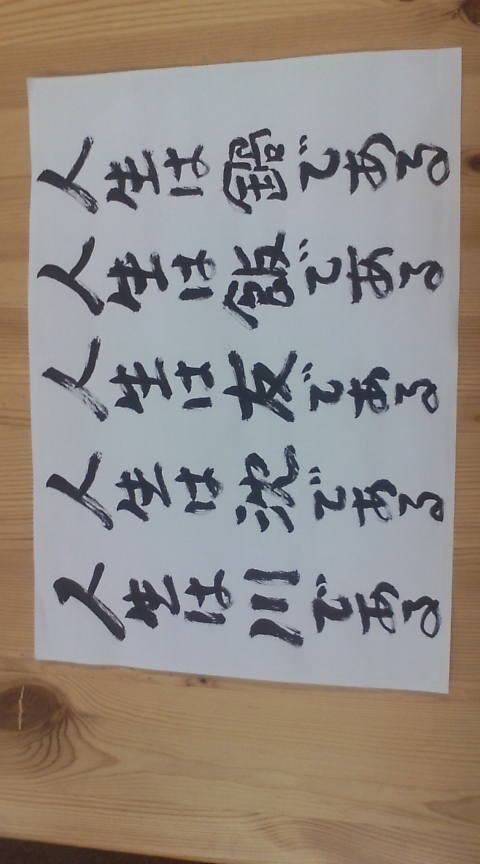 人生は鍋である
人生は飯である
人生は友である
人生は沈である
人生は川である